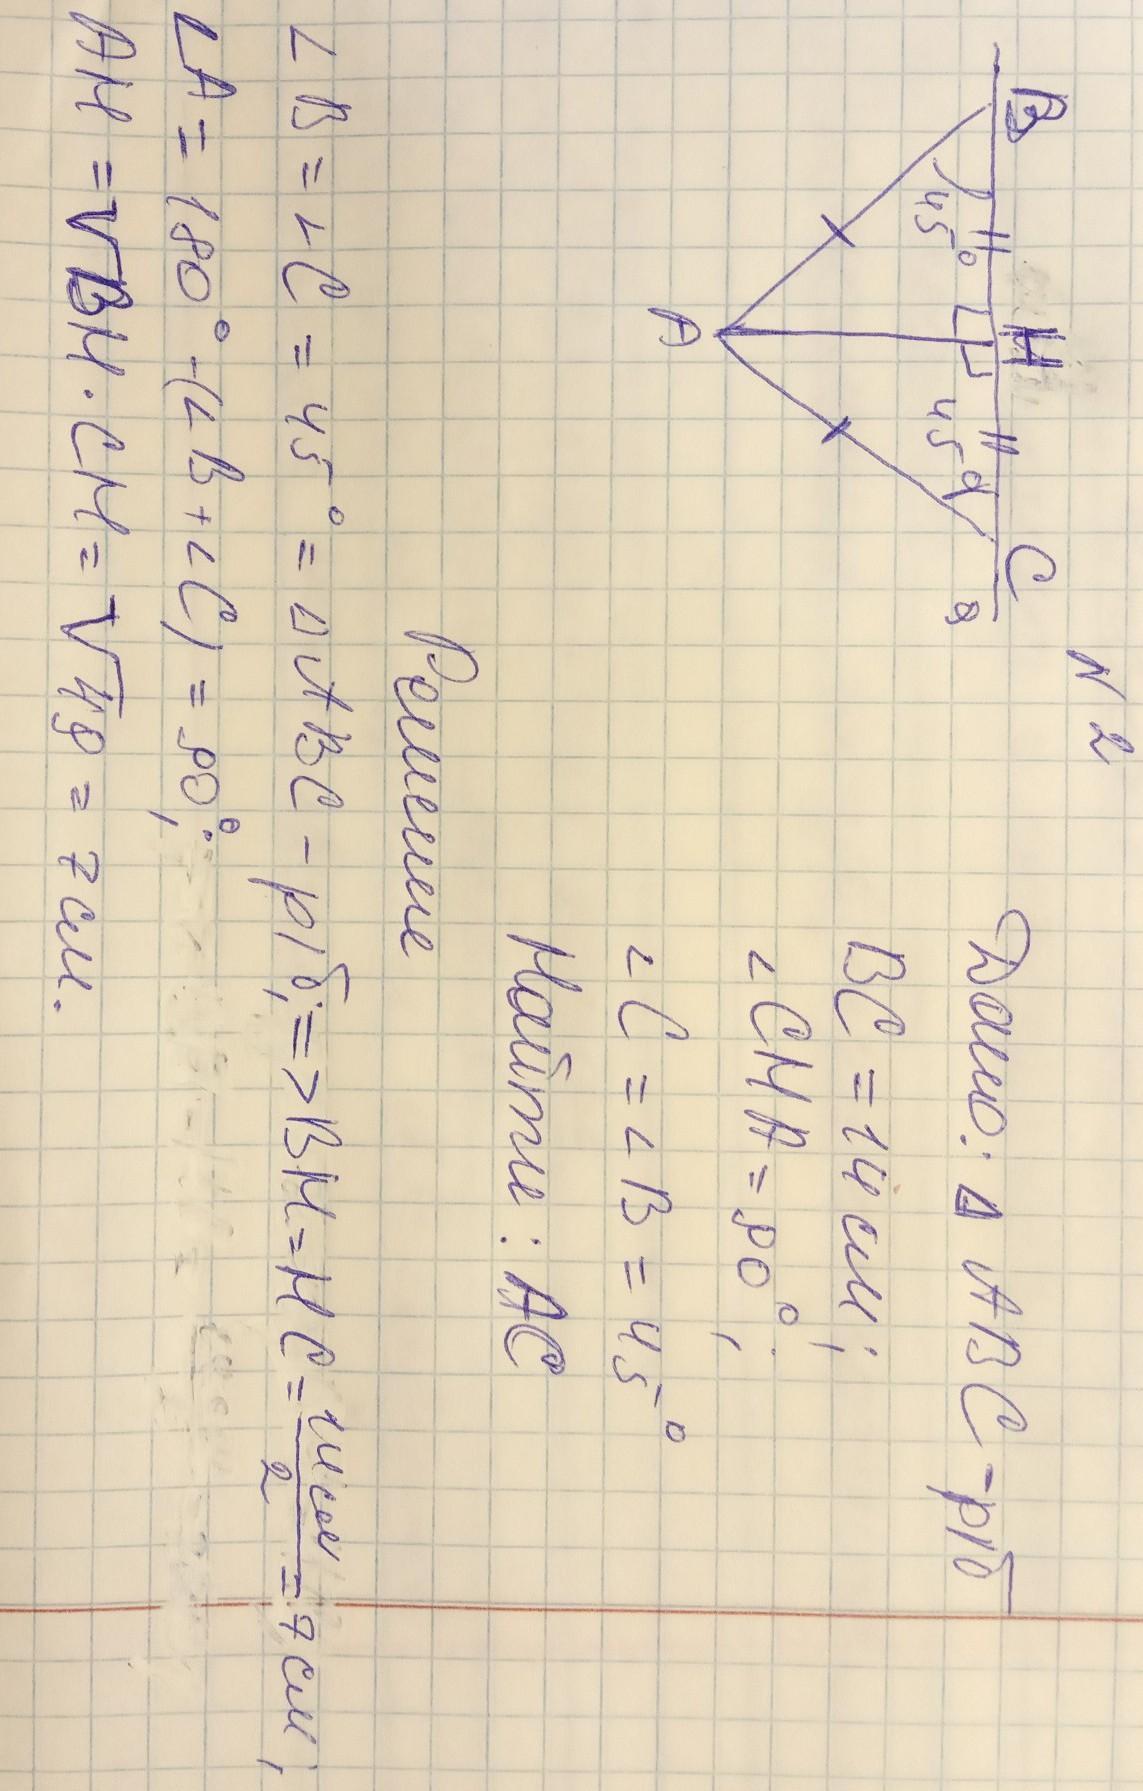 N 2
B H C a
45° 45°
A
Дано: Δ ABC - р/б
BC = 14 см;
∠CHA = 90°;
∠C = ∠B = 45°
Найти: AC
Решение
∠B = ∠C = 45° = Δ ABC - р/б; => BH = HC = 14см/2 = 7 см;
∠A = 180° - (∠B + ∠C) = 90°;
AH = √BH · CH = √49 = 7 см.